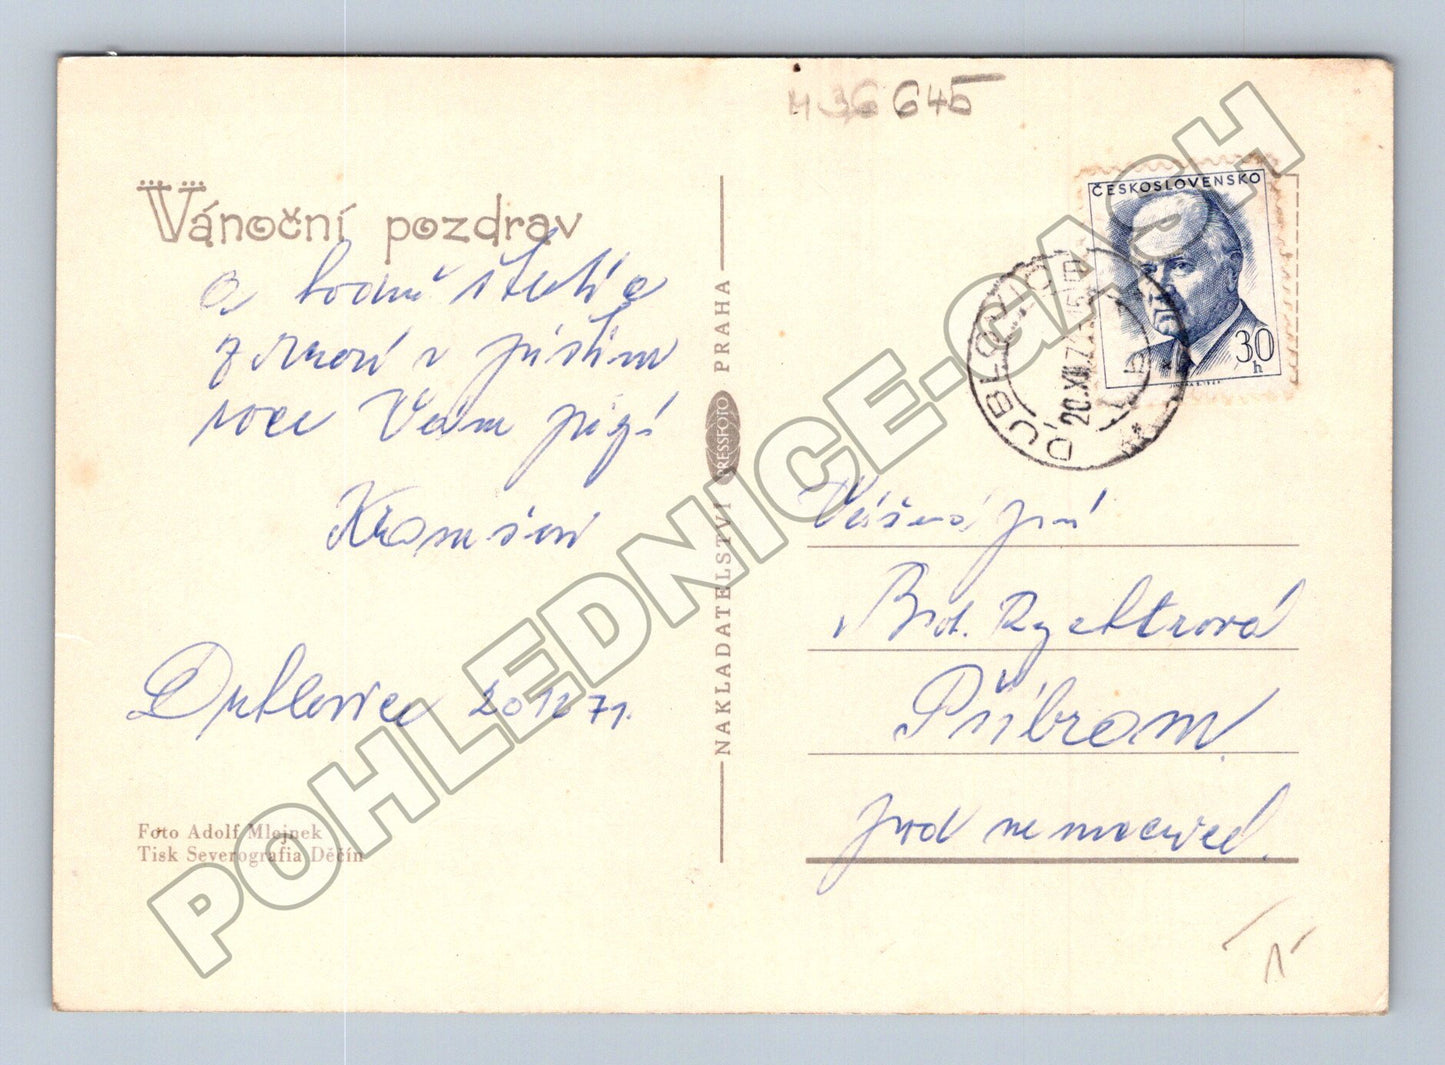 436645
Vánoční pozdrav
a hodně štěstí a
zdraví v příštím
roce Vám přejí
Kramšovi
Dublovice 20 12 71.
Foto Adolf Mlejnek
Tisk Severografia Děčín
NAKLADATELSTVÍ PRESSFOTO PRAHA
ČESKOSLOVENSKO
30
h
DUBLOVICE
20.XII.71
Vážená paní
Bož. Rychtrová
Příbram
pod nemocnicí.
POHLEDNICE-GASH